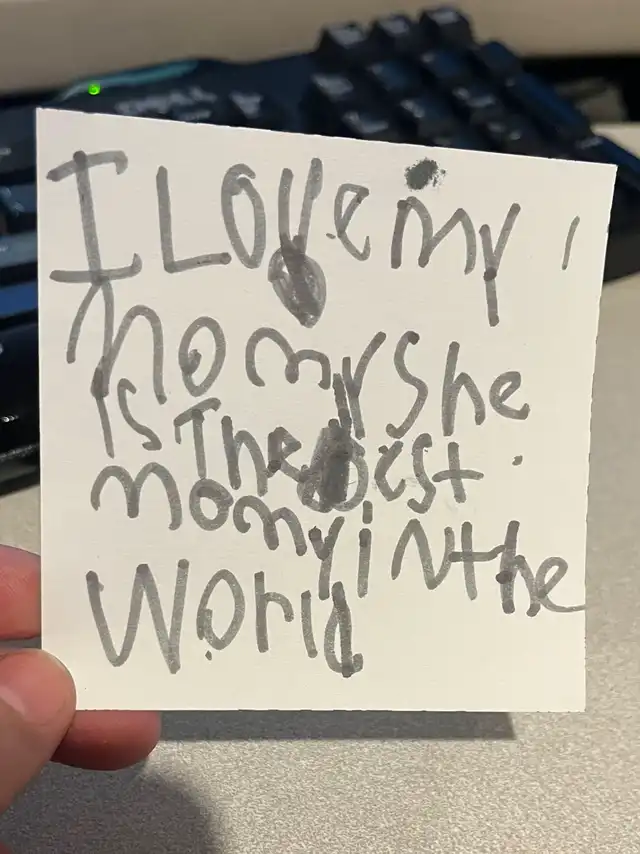 I LOVe my
momy She
is The best
momy in the
World